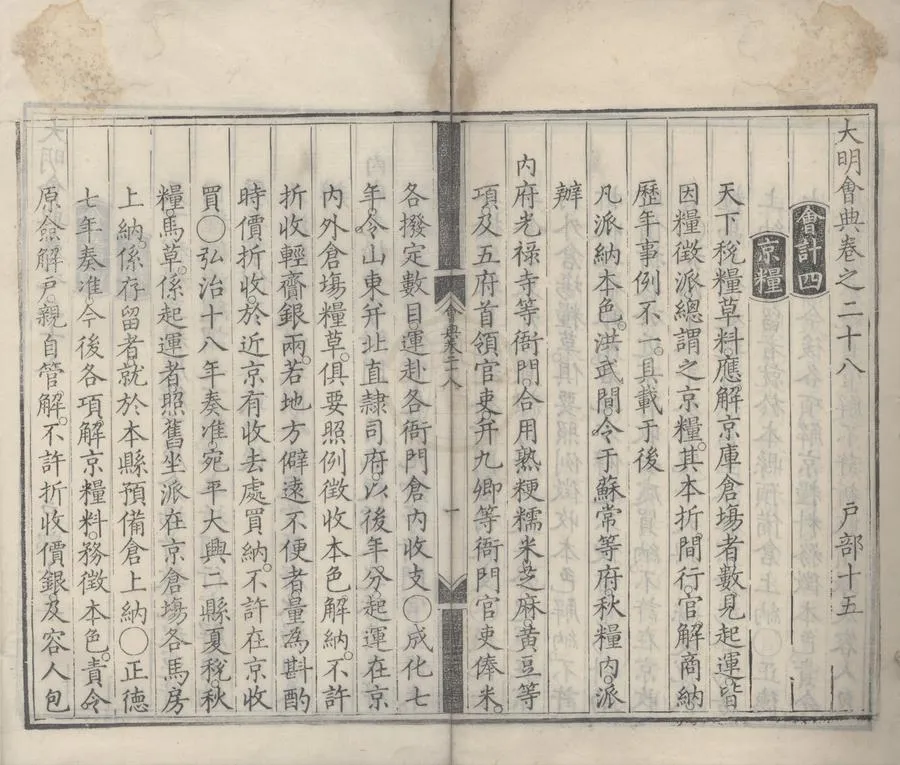 大明會典卷之二十八 戶部十五
會計四
京糧
天下稅糧草料。應解京庫倉塲者數見起運。皆
因糧徵派總謂之京糧。其本折間行。官解商納
歷年事例不一。具載于後
凡派納本色。洪武間。令于蘇常等府。秋糧內。派
辦
內府光祿寺等衙門。合用熟粳糯米。芝麻。黃豆等
項及五府首領官吏并九卿等衙門官吏俸米。
會典卷二十八 一
各撥定數目。運赴各衙門倉內收支○成化七
年。令山東并北直隸司府。以後年分。起運在京
內外倉塲糧草。俱要照例徵收本色解納。不許
折收輕齎銀兩。若地方僻遠不便者。量為斟酌
時價折收。於近京有收去處買納。不許在京收
買○弘治十八年奏准。宛平大興二縣夏稅秋
糧。馬草。係起運者。照舊坐派在京倉塲各馬房
上納。係存留者。就於本縣預備倉上納○正德
七年奏准。今後各項。解京糧料。務徵本色。責令
原僉解戶。親自管解。不許折收價銀。及容人包